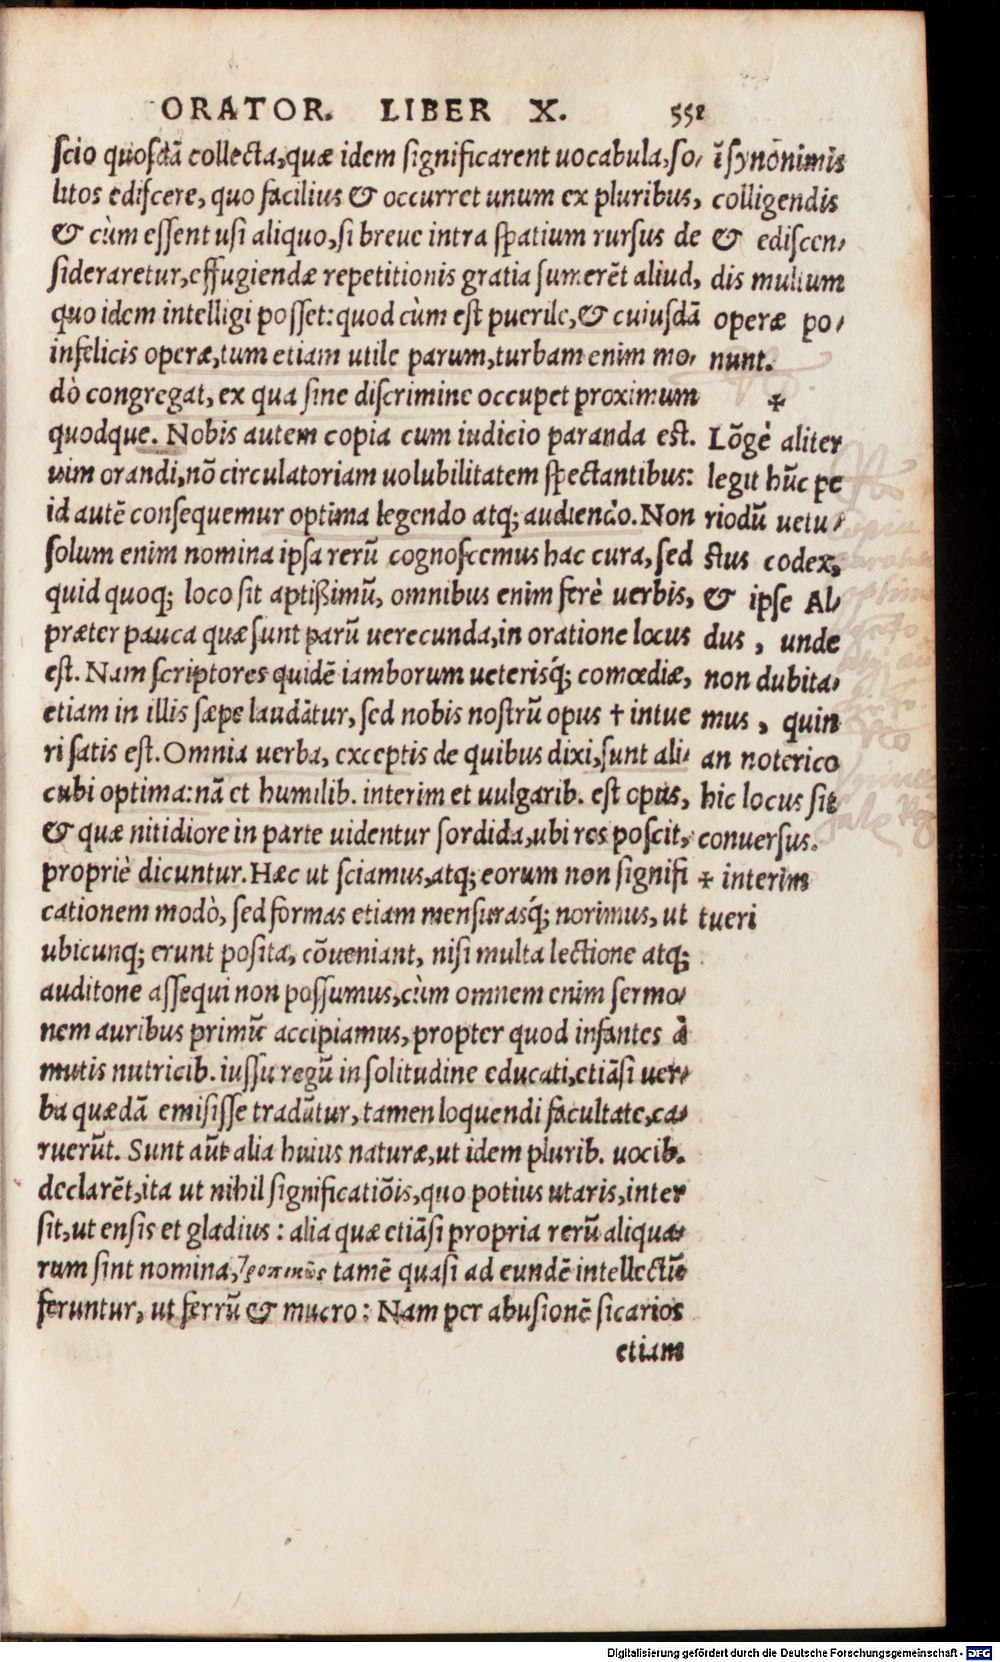 ORATOR. LIBER X. 551
scio quosdā collecta, quæ idem significarent uocabula, so-
litos ediscere, quo facilius & occurret unum ex pluribus,
& cùm essent usi aliquo, si breue intra spatium rursus de
sideraretur, effugiendæ repetitionis gratia sumerēt aliud,
quo idem intelligi posset: quod cùm est puerile, & cuiusdā
infelicis operæ, tum etiam utile parum, turbam enim mo-
dò congregat, ex qua sine discrimine occupet proximum
quodque. Nobis autem copia cum iudicio paranda est.
uim orandi, nō circulatoriam uolubilitatem spectantibus:
id autē consequemur optima legendo atq; audiendo. Non
solum enim nomina ipsa rerū cognoscemus hac cura, sed
quid quoq; loco sit aptißimū, omnibus enim ferè uerbis,
præter pauca quæ sunt parū uerecunda, in oratione locus
est. Nam scriptores quidē iamborum ueterisq́; comœdiæ,
etiam in illis sæpe laudātur, sed nobis nostrū opus † intue
ri satis est. Omnia uerba, exceptis de quibus dixi, sunt ali-
cubi optima: nā et humilib. interim et uulgarib. est opus,
& quæ nitidiore in parte uidentur sordida, ubi res poscit,
propriè dicuntur. Hæc ut sciamus, atq; eorum non signifi
cationem modò, sed formas etiam mensurasq́; norimus, ut
ubicunq; erunt posita, cōueniant, nisi multa lectione atq;
auditone assequi non possumus, cùm omnem enim sermo-
nem auribus primū accipiamus, propter quod infantes à
mutis nutricib. iussu regū in solitudine educati, etiāsi uer-
ba quædā emisisse tradūtur, tamen loquendi facultate, ca-
ruerūt. Sunt aūt alia huius naturæ, ut idem plurib. uocib.
declarēt, ita ut nihil significatiōis, quo potius utaris, inter
sit, ut ensis et gladius: alia quæ etiāsi propria rerū aliqua-
rum sint nomina, τροπικῶς tamē quasi ad eundē intellectū
feruntur, ut ferrū & mucro: Nam per abusionē sicarios
etiam
ī synōnimis
colligendis
& ediscen-
dis multum
operæ po-
nunt.
✠
Lōgè aliter
legit hūc pe
riodū uetu-
stus codex,
& ipse Al-
dus, unde
non dubita-
mus, quin
an noterico
hic locus sit
conuersus.
✠ interim
tueri
Digitalisierung gefördert durch die Deutsche Forschungsgemeinschaft - DFG